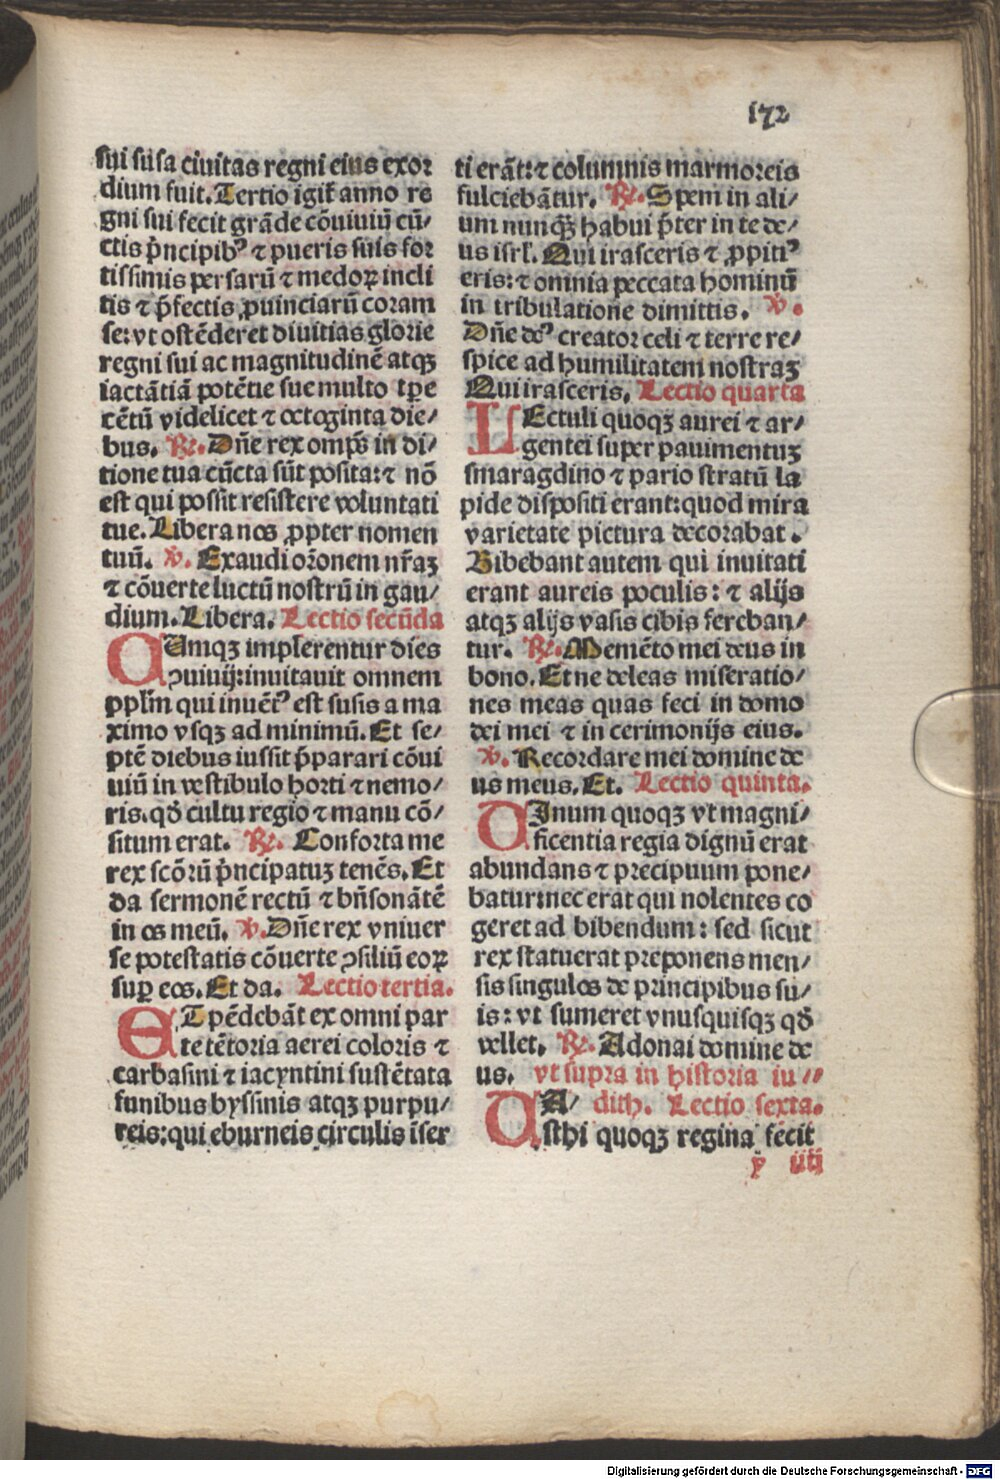 172
sui susa ciuitas regni eius exor
dium fuit. Tertio igit̃ anno re
gni sui fecit grãde cõuiuiũ cũ/
ctis p̃ncipibꝰ ⁊ pueris suis for
tissimis persarũ ⁊ medoꝝ incli
tis ⁊ p̃fectis ꝓuinciarũ coram
se: vt ostẽderet diuitias glorie
regni sui ac magnitudinẽ atqꝫ
iactãtiã potẽtie sue multo tꝑe
cẽtũ videlicet ⁊ octoginta die/
bus. ℟. Dñe rex omp̃s in di/
tione tua cũcta sũt posita: ⁊ nõ
est qui possit resistere voluntati
tue. Libera nos ꝓpter nomen
tuũ. ℣. Exaudi or̃onem nr̃aꝫ
⁊ cõuerte luctũ nostrũ in gau/
dium. Libera. Lectio secũda
CUmqꝫ implerentur dies
ꝯuiuij: inuitauit omnem
pplm̃ qui inuẽtꝰ est susis a ma
ximo vsqꝫ ad minimũ. Et se/
ptẽ diebus iussit p̃parari cõui
uiũ in vestibulo horti ⁊ nemo/
ris. qd̃ cultu regio ⁊ manu cõ/
situm erat. ℟. Conforta me
rex scõrũ p̃ncipatuꝫ tenẽs. Et
da sermonẽ rectũ ⁊ bñsonãtẽ
in os meũ. ℣. Dñe rex vniuer
se potestatis cõuerte ꝯsiliũ eoꝝ
suꝑ eos. Et da. Lectio tertia.
ET pẽdebãt ex omni par
te tẽtoria aerei coloris ⁊
carbasini ⁊ iacyntini sustẽtata
funibus byssinis atqꝫ purpu/
reis: qui eburneis circulis ĩser
ti erãt: ⁊ columnis marmoreis
fulciebãtur. ℟. Spem in ali/
um nunqꝫ̃ habui p̃ter in te de/
us isrl̃. Qui irasceris ⁊ ꝓpitiꝰ
eris: ⁊ omnia peccata hominũ
in tribulatione dimittis. ℣.
Dñe deꝰ creator celi ⁊ terre re/
spice ad humilitatem nostraꝫ
Qui irasceris. Lectio quarta
LEctuli quoqꝫ aurei ⁊ ar/
gentei super pauimentuꝫ
smaragdino ⁊ pario stratũ la
pide dispositi erant: quod mira
varietate pictura decorabat.
Bibebant autem qui inuitati
erant aureis poculis: ⁊ alijs
atqꝫ alijs vasis cibis fereban/
tur. ℟. Memẽto mei deus in
bono. Et ne deleas miseratio/
nes meas quas feci in domo
dei mei ⁊ in cerimonijs eius.
℣. Recordare mei domine de
us meus. Et. Lectio quinta.
UInum quoqꝫ vt magni/
ficentia regia dignũ erat
abundans ⁊ precipuum pone/
batur: nec erat qui nolentes co
geret ad bibendum: sed sicut
rex statuerat preponens men/
sis singulos de principibus su/
is: vt sumeret vnusquisqꝫ qd̃
vellet. ℟. Adonai domine de
us. vt supra in historia iu//
UA/ dith. Lectio sexta.
sthi quoqꝫ regina fecit
y iiij
Digitalisierung gefördert durch die Deutsche Forschungsgemeinschaft - DFG